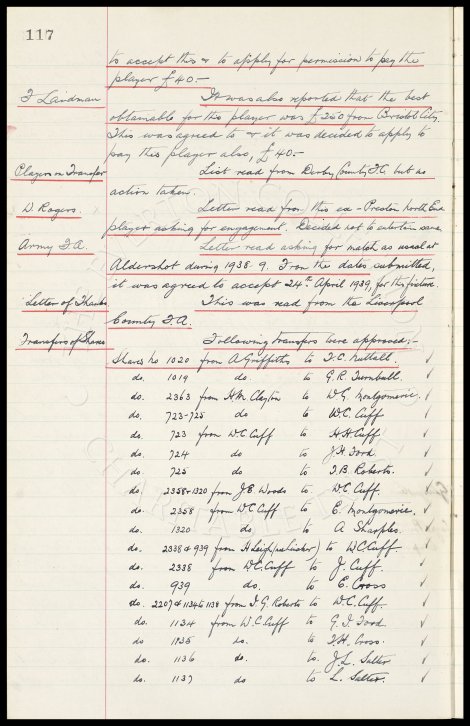 117
to accept this & to apply for permission to pay the
player £40:-
It was also reported that the best
obtainable for this player was £250 from Bristol City.
This was agreed to & it was decided to apply to
pay this player also, £40:-
Players on Transfer List read from Derby County F.C. but no
action taken.
D. Rogers. Letter read from this ex-Preston North End
player asking for engagement. Decided not to entertain same
Army F.A. Letter read asking for match as usual at
Aldershot during 1938-9. From the dates submitted,
it was agreed to accept 24th April 1939, for this fixture.
Letter of Thanks This was read from the Liverpool
County F.A.
Transfers of Shares Following transfers were approved:-
Shares No 1020 from A Griffiths to F.C. Nuttall. ✓
do. 1019 do. to G.R. Turnbull. ✓
do. 2363 from H.M. Clayton to W.G. Montgomerie. ✓
do. 723-725 do to W.C. Cuff ✓
do. 723 from W.C. Cuff to H.H. Cuff. ✓
do. 724 do to J.H. Ford. ✓
do. 725 do to T.B. Roberts. ✓
do. 2358 & 1320 from J.E. Woods to W.C. Cuff. ✓
do. 2358 from W.C. Cuff to E. Montgomerie. ✓
do. 1320 do. to A Sharples. ✓
do. 2338 & 939 from H Leigh to W C Cuff. ✓
do. 2338 from W.C. Cuff to J. Cuff. ✓
do. 939 do. to E. Cross ✓
do. 2207 & 1134 to 1138 from T.G. Roberts to W.C. Cuff. ✓
do. 1134 from W.C. Cuff to G.I. Ford. ✓
do 1135 do. to T.H. Cross. ✓
do. 1136 do. to J.L. Salter ✓
do. 1137 do to L. Salter. ✓